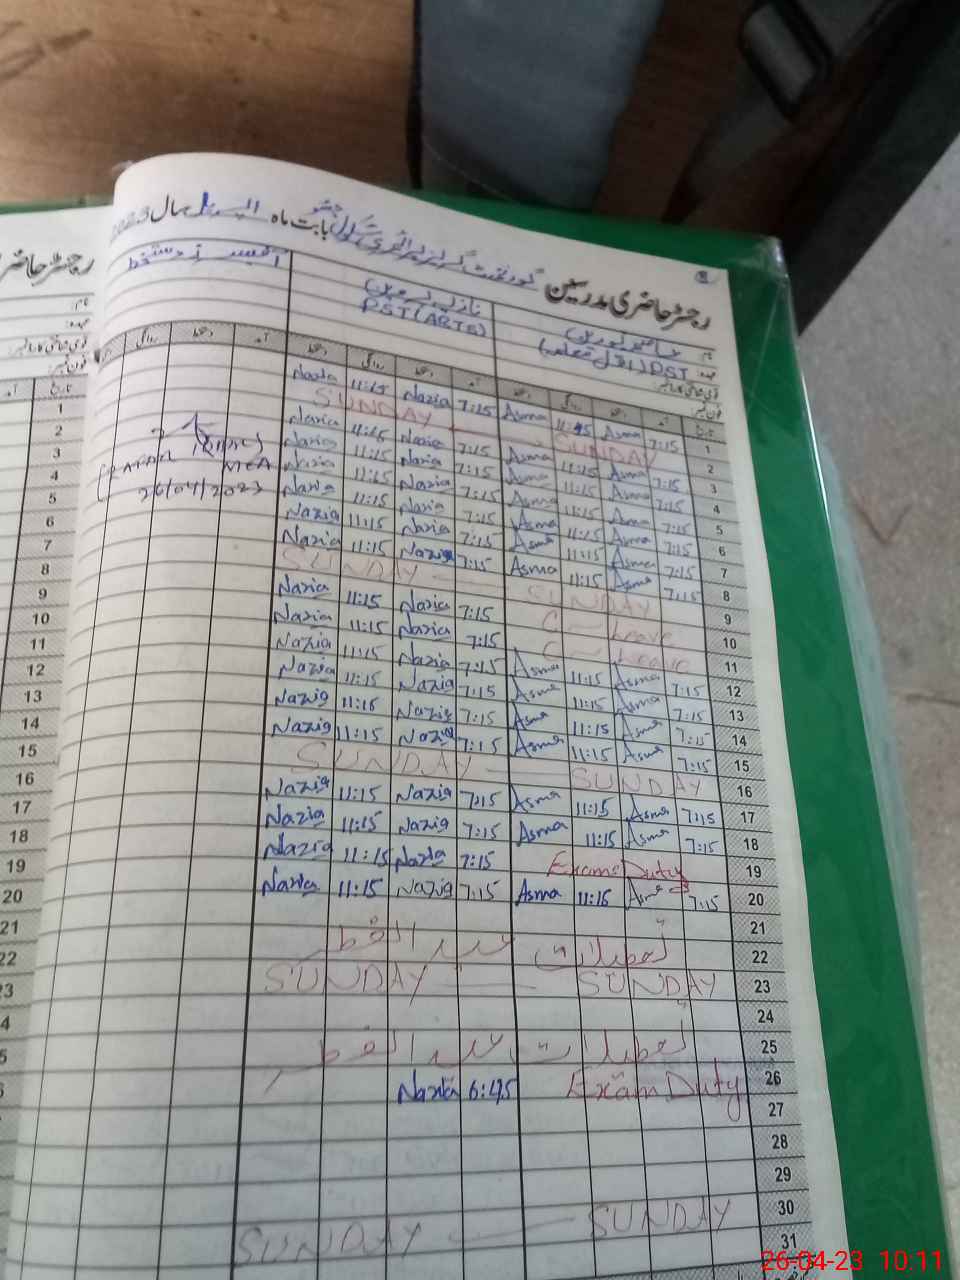 رجسٹر حاضری مدرسین گورنمنٹ گرلز پرائمری سکول بابت ماہ اپریل سال 2023
رجسٹر حاضر
نام
نازیہ پروین
آفیسرز دستخط
عہدہ: PST
PST (ARTS)
قومی شناختی کارڈ نمبر:
فون نمبر:
تاریخ آمد دستخط روانگی دستخط آمد دستخط روانگی دستخط
1 7:15 Asma 11:45 Asma 7:15 Nazia 11:15 Nazia
2 SUNDAY SUNDAY
3 7:15 Asma 11:15 Asma 7:15 Nazia 11:15 Nazia
4 7:15 Asma 11:15 Asma 7:15 Nazia 11:15 Nazia
5 7:15 Asma 11:15 Asma 7:15 Nazia 11:15 Nazia
6 7:15 Asma 11:15 Asma 7:15 Nazia 11:15 Nazia
7 7:15 Asma 11:15 Asma 7:15 Nazia 11:15 Nazia
8 7:15 Asma 11:15 Asma 7:15 Nazia 11:15 Nazia
MEA
26/04/2023
9 SUNDAY SUNDAY
10 C - Leave 7:15 Nazia 11:15 Nazia
11 C - Leave 7:15 Nazia 11:15 Nazia
12 7:15 Asma 11:15 Asma 7:15 Nazia 11:15 Nazia
13 7:15 Asma 11:15 Asma 7:15 Nazia 11:15 Nazia
14 7:15 Asma 11:15 Asma 7:15 Nazia 11:15 Nazia
15 7:15 Asma 11:15 Asma 7:15 Nazia 11:15 Nazia
16 SUNDAY SUNDAY
17 7:15 Asma 11:15 Asma 7:15 Nazia 11:15 Nazia
18 7:15 Asma 11:15 Asma 7:15 Nazia 11:15 Nazia
19 Exam Duty 7:15 Nazia 11:15 Nazia
20 7:15 Asma 11:15 Asma 7:15 Nazia 11:15 Nazia
21
22 تعطیلات عید الفطر
23 SUNDAY SUNDAY
24
25 تعطیلات عید الفطر
26 Exam Duty 6:45 Nazia
27
28
29
30 SUNDAY SUNDAY
31
26-04-23 10:11